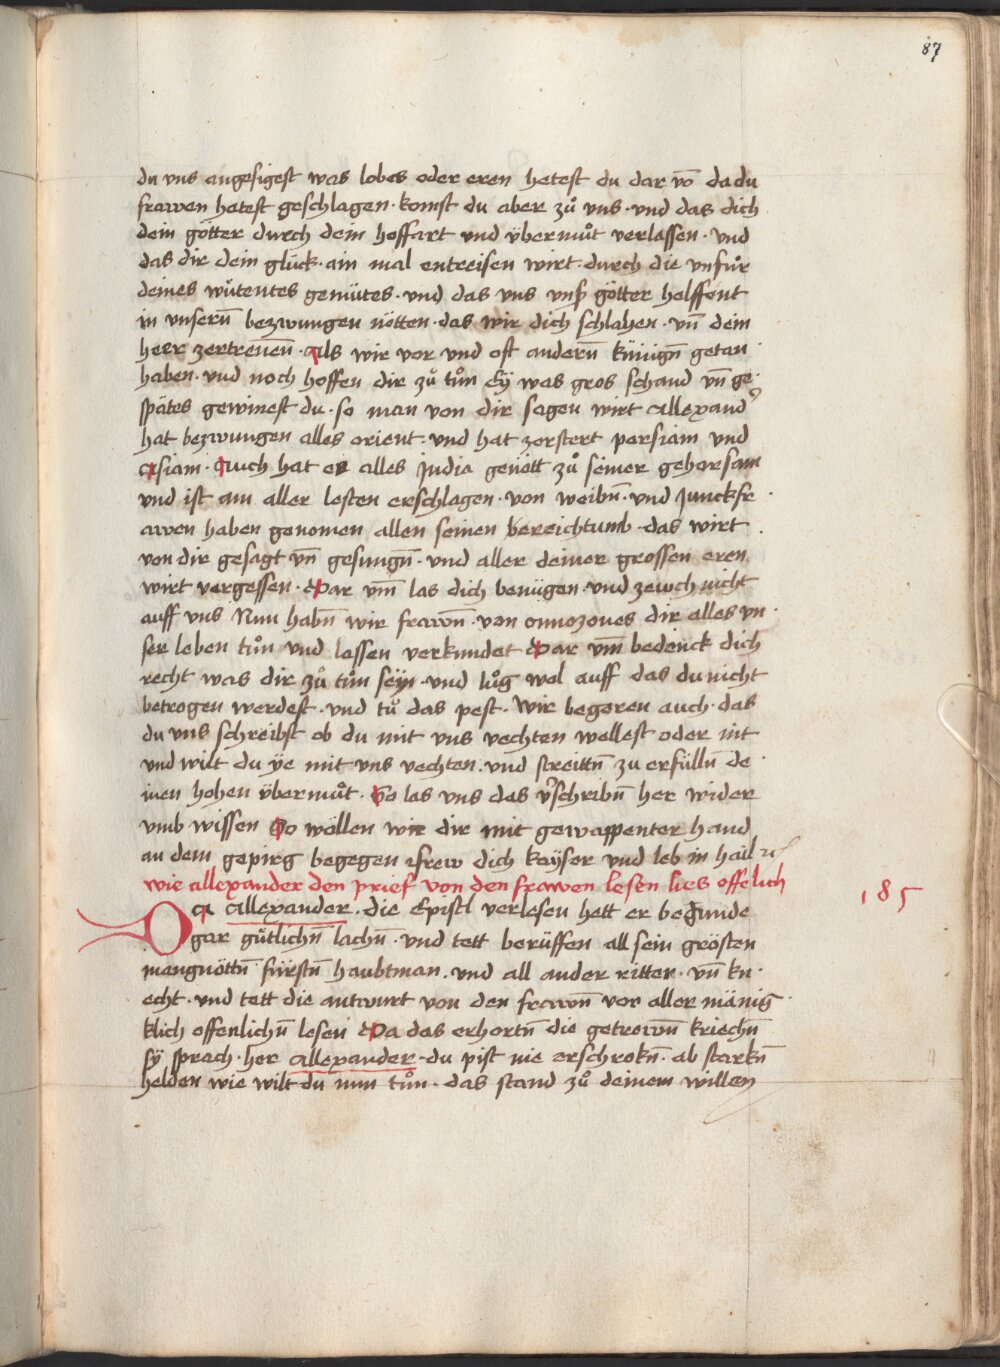 87
du vns angesigest was lobes oder eren hetest du dar vō da du
frawen hetest geschlagen · komst du aber zů vns · vnd das dich
dein götter durch dein hoffart vnd v̈bermůt verlassen · vnd
das dir dein glück · ain mal entreisen wirt · durch die vnfůr
deines wůtentes gemütes · vnd das vns vnsʳ götter helffent
in vnsern̄ bezwungen nötten · das wir dich schlahen · vn̄ dein
heer zertreuen̄ · Als wir vor vnd oft andern̄ künign̄ getan
haben · vnd noch hoffen dir zů tůn Ey was gros schand vn̄ ge ·
spätes gewinest du · so man von dir sagen wirt allexandˀ
hat bezwungen alles orient · vnd hat zerstert persiam vnd
asiam · Auch hat er alles India genött zů seiner gehorsam
vnd ist am aller lesten erschlagen · von weibn̄ · vnd Junckfr ·
awen haben genomen allen seinen bereichtumb · das wirt ·
von dir gesagt vn̄ gesungn̄ · vnd aller deiner grossen eren
wirt vergessen · Dar vm̄ las dich benügen · vnd zewch nicht
auff vns Nun habn̄ wir frawn̄ · von amozones dir alles vn ·
ser leben tůn vnd lassen verkundet Dar vm̄ bedenck dich
recht was dir zů tůn seÿn · vnd lůg wol auff das du nicht
betrogen werdest · vnd tů das pest · Wir begeren auch · das
du vns schreibst ob du mit vns vechten wellest oder nit
vnd wilt du ÿe mit vns vechten · vnd streittn̄ zu erfülln̄ de ·
inen hohen v̈bermůt · So las vns das vˀschribn̄ her wider
vmb wissen So wöllen wir dir mit gewappenter hand
an dem gepirg begegen · frew dich keÿser vnd leb in hail
wie allexander den prief von den frawen lesen lies offelich
185
Da Allexander · die Epistl verlesen hett er begunde
gar gůtlichn̄ lachn̄ · vnd tett berüffen all sein grösten
mangnöttn̄ fürstn̄ haubtman · vnd all ander ritter · vn̄ kn ·
echt · vnd tett die antwurt von den frawn̄ vor aller mänig ·
klich offenlichn̄ lesen Da das erhortn̄ die getrewn̄ kriechn̄
sÿ sprach · her Allexander · du pist nie erschrokn̄ · ab starkn̄
helden wie wilt du nun tůn · das stand zů deinem willen